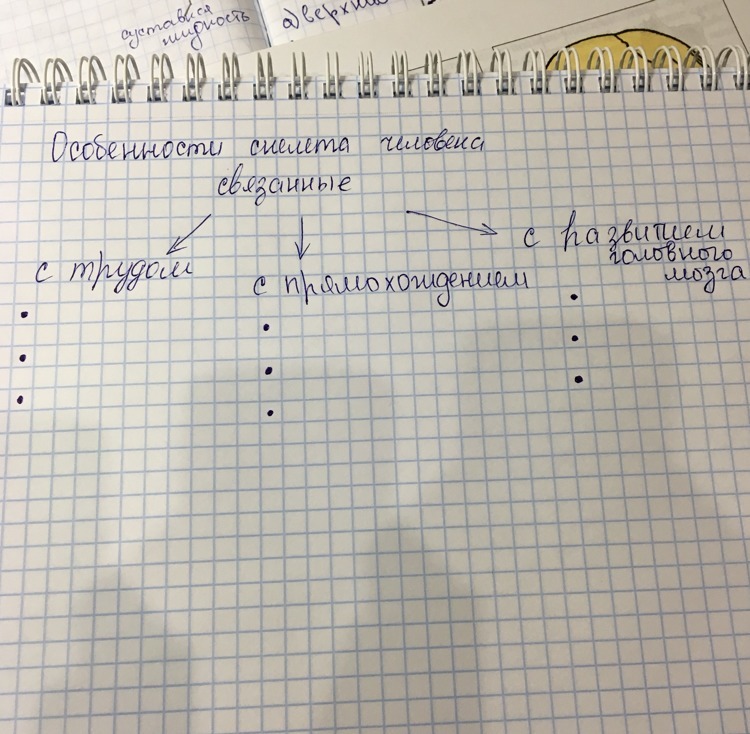 суставная
жидкость
а) верхни
Особенности скелета человека
связанные
с трудом
с прямохождением
с развитием
головного
мозга